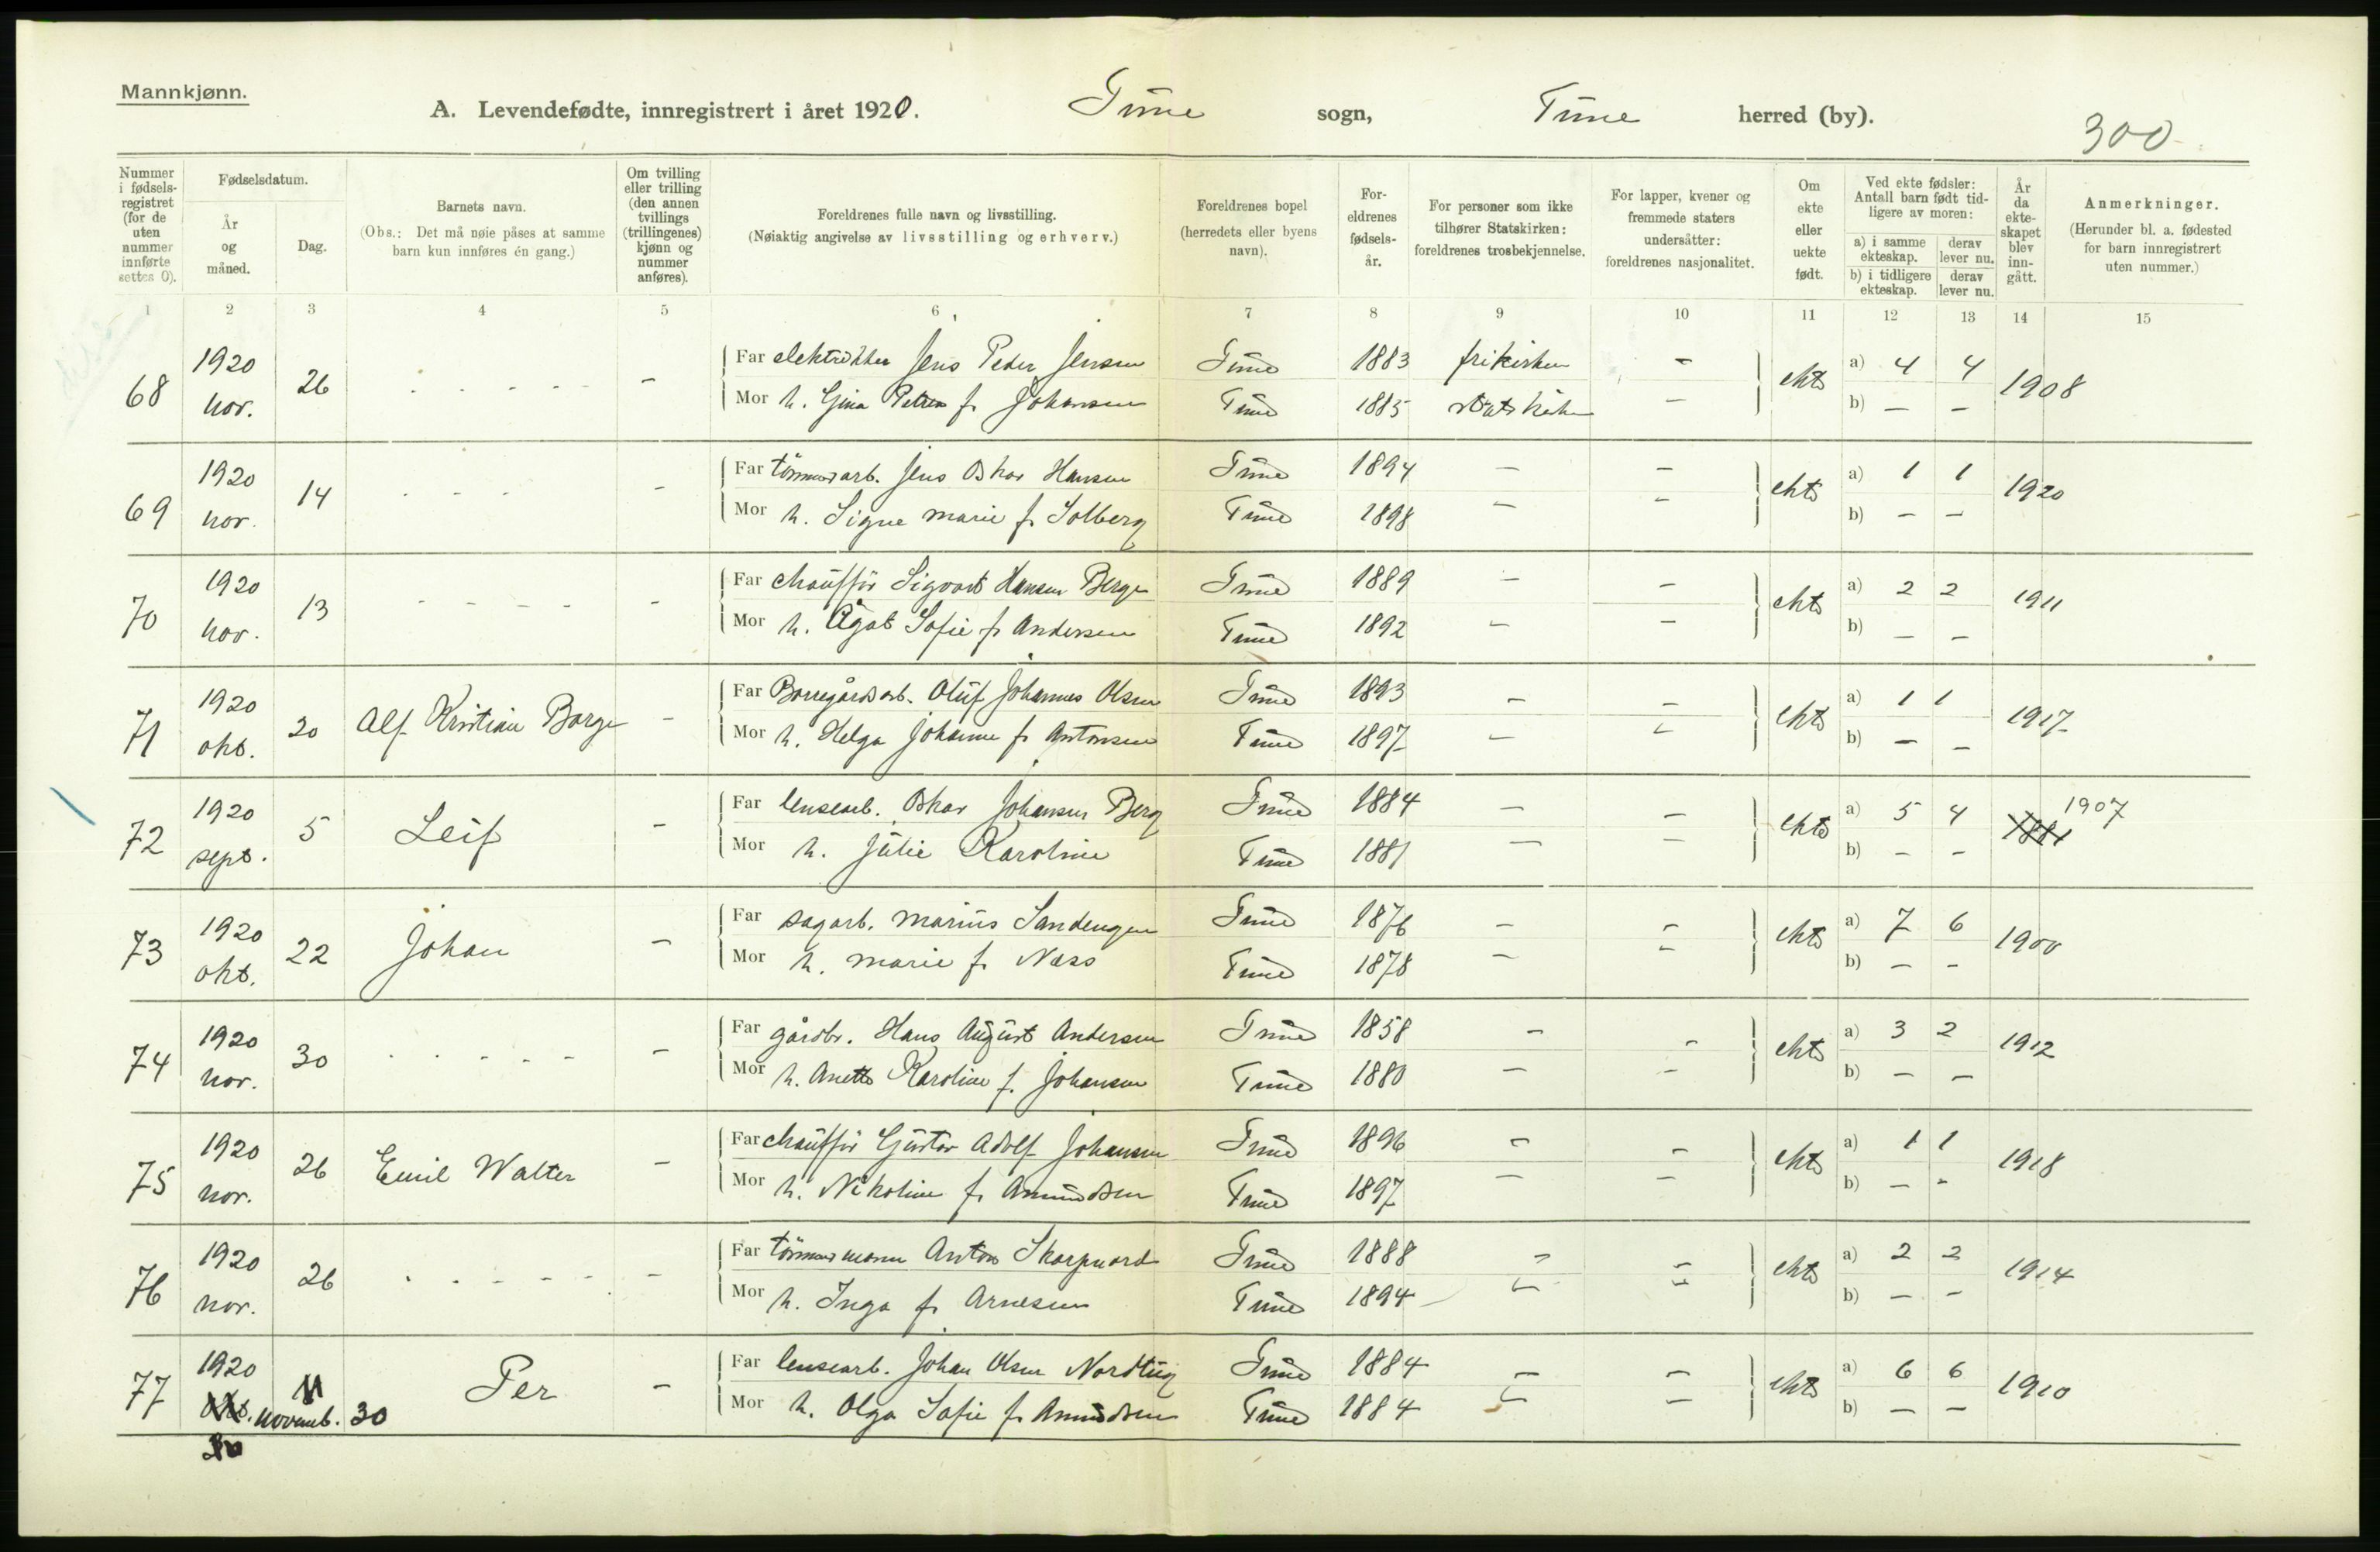 Mannkjønn.
A. Levendefødte, innregistrert i året 1920. Tune sogn, Tune herred (by).
300
Nummer i fødsels-registret (for de uten nummer innførte settes 0).
Fødselsdatum.
År og måned.
Dag.
Barnets navn.
(Obs.: Det må nøie påses at samme barn kun innføres én gang.)
Om tvilling eller trilling (den annen tvillings (trillingenes) kjønn og nummer anføres).
Foreldrenes fulle navn og livsstilling.
(Nøiaktig angivelse av livsstilling og erhverv.)
Foreldrenes bopel (herredets eller byens navn).
For-eldrenes fødsels-år.
For personer som ikke tilhører Statskirken: foreldrenes trosbekjennelse.
For lapper, kvener og fremmede staters undersåtter: foreldrenes nasjonalitet.
Om ekte eller uekte født.
Ved ekte fødsler: Antall barn født tid-ligere av moren:
a) i samme ekteskap.
derav lever nu.
b) i tidligere ekteskap.
derav lever nu.
År da ekte-skapet blev inn-gått.
Anmerkninger.
(Herunder bl. a. fødested for barn innregistrert uten nummer.)
1 2 3 4 5 6 7 8 9 10 11 12 13 14 15
68 1920 nov. 26 - - - - - - Far elektriker Jens Peder Jensen Tune 1883 frikirken - ekte a) 4 4 1908
Mor h. Gina Petrea f. Johansen Tune 1885 statskirken - b) - -
69 1920 nov. 14 - - - - Far tømmerarb. Jens Oskar Hansen Tune 1894 - - ekte a) 1 1 1920
Mor h. Signe Marie f. Solberg Tune 1898 - - b) - -
70 1920 nov. 13 - - - - - Far chauffør Sigvart Hansen Berge Tune 1889 - - ekte a) 2 2 1911
Mor h. Ågot Sofie f. Andersen Tune 1892 - - b) - -
71 1920 okt. 20 Alf Kristian Borge - Far Borregårdsarb. Oluf Johannes Olsen Tune 1893 - - ekte a) 1 1 1917
Mor h. Helga Johanne f. Antonsen Tune 1897 - - b) - -
72 1920 sept. 5 Leif - Far lensearb. Oskar Johansen Berg Tune 1884 - - ekte a) 5 4 1881 1907
Mor h. Julie Karoline Tune 1881 - - b) - -
73 1920 okt. 22 Johan - Far sagarb. Marius Sandengen Tune 1876 - - ekte a) 7 6 1900
Mor h. Marie f. Næss Tune 1878 - - b) - -
74 1920 nov. 30 - - - - - - Far gårdbr. Hans August Andersen Tune 1858 - - ekte a) 3 2 1912
Mor h. Anette Karoline f. Johansen Tune 1880 - - b) - -
75 1920 nov. 26 Emil Walter - Far chauffør Gustav Adolf Johansen Tune 1896 - - ekte a) 1 1 1918
Mor h. Nikoline f. Amundsen Tune 1897 - - b) - -
76 1920 nov. 26 - - - - - - Far tømmermann Anton Skarpnord Tune 1888 - - ekte a) 2 2 1914
Mor h. Inga f. Arnesen Tune 1894 - - b) - -
77 1920 okt. novemb. 30 Per - Far lensearb. Johan Olsen Nordtug Tune 1884 - - ekte a) 6 6 1910
Mor h. Olga Sofie f. Amundsen Tune 1884 - - b) - -